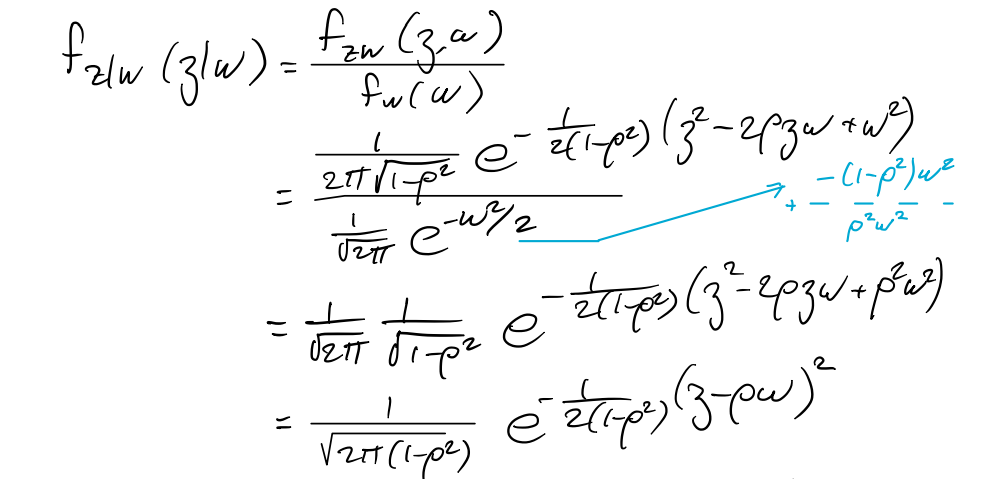 f_{z|w}(z|w) = \frac{f_{zw}(z,w)}{f_w(w)}
= \frac{\frac{1}{2π\sqrt{1-ρ^2}} e^{-\frac{1}{2(1-ρ^2)}(z^2-2ρzw+w^2)}}{\frac{1}{\sqrt{2π}} e^{-w^2/2}}
-(1-ρ^2)w^2
+ρ^2w^2
= \frac{1}{\sqrt{2π}} \frac{1}{\sqrt{1-ρ^2}} e^{-\frac{1}{2(1-ρ^2)}(z^2-2ρzw+ρ^2w^2)}
= \frac{1}{\sqrt{2π(1-ρ^2)}} e^{-\frac{1}{2(1-ρ^2)}(z-ρw)^2}